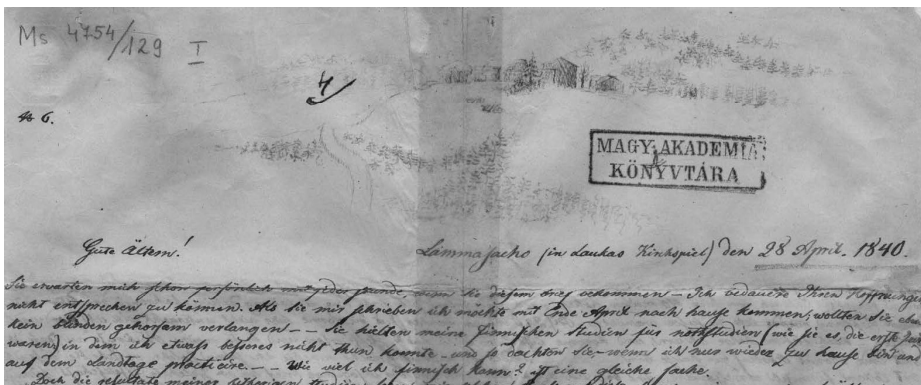 Ms 4754/129 I
4
№ 6.
MAGY. AKADEMIA
KÖNYVTÁRA
Gute Ältern!
Lämmasjacho (in Laukas Kirchspiel) den 28 April. 1840.
Sie erwarten mich schon persönlich mit jeder stunde, wenn Sie diesen brief bekommen – Ich bedauere Ihren Hoffnungen
nicht entsprechen zu können. Als Sie mir schrieben ich möchte mit Ende April nach hause kommen, wollten Sie aber
kein blinden gehorsam verlangen – – Sie hielten meine finnischen Studien für nothstudien (wie sie es, die erste Zeit
waren) in dem ich etwass besseres nicht thun konnte – und so dachten Sie – wenn ich nur wieder zu hause bin und
auf dem Landtage practicire. – – Wie viel ich finnisch kann? ist eine gleiche sache.
Doch die resultate meiner bisherigen studien